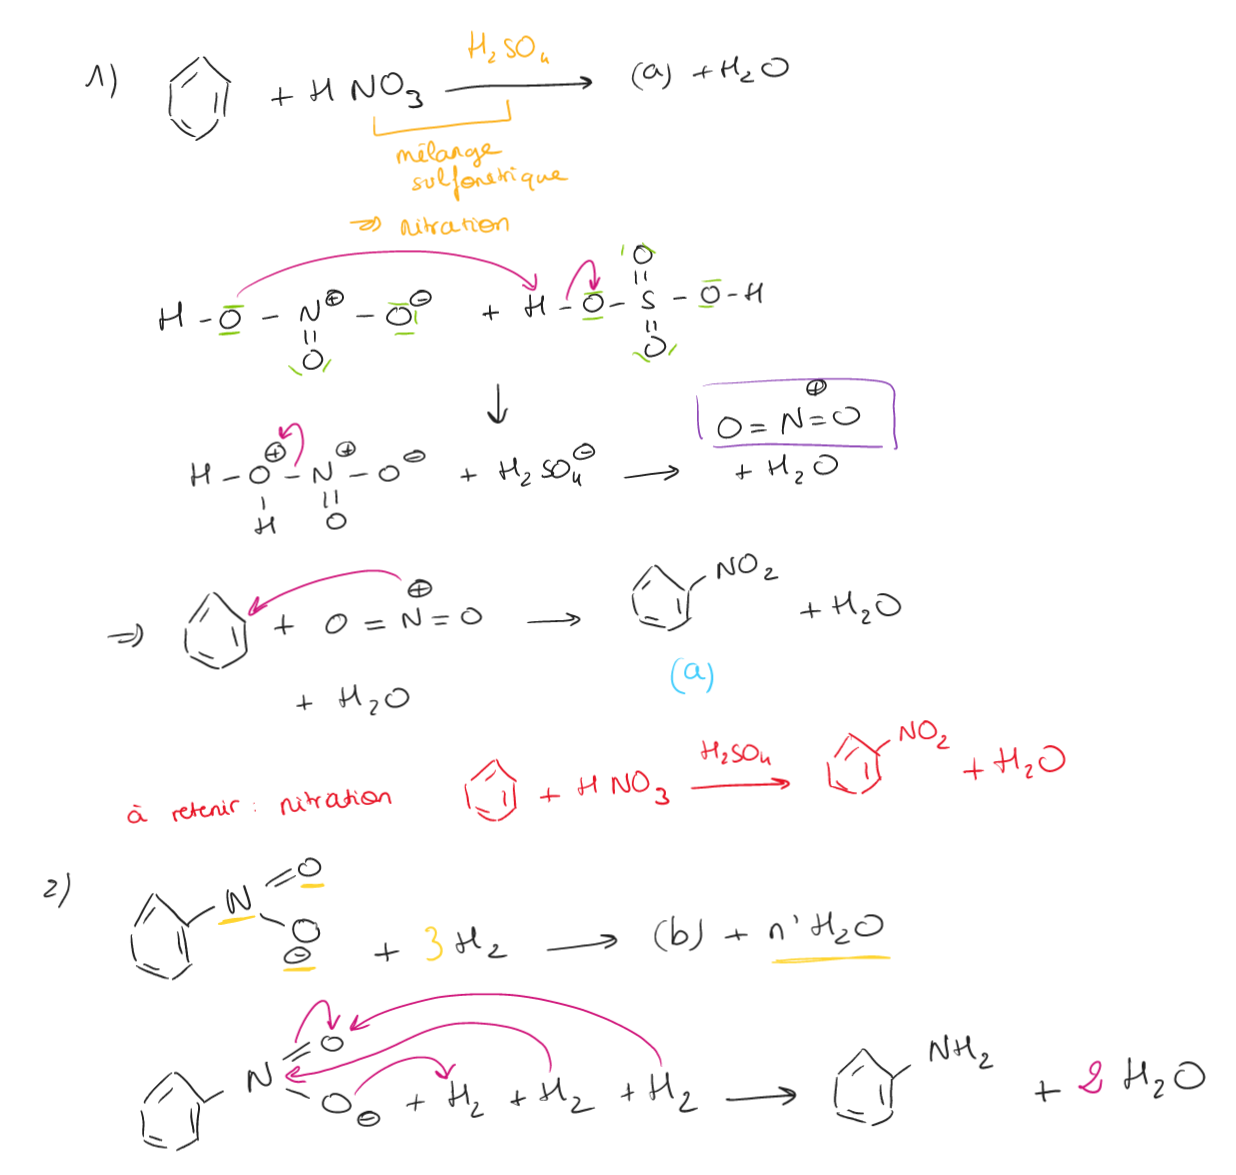 1) + HNO₃ H₂SO₄ → (a) + H₂O
mélange
sulfonitrique
⇒ nitration
H - O - N⊕ - O⊖ + H - O - S - O - H
O O O
↓
H - O⊕ - N⊕ - O⊖ + H₂SO₄⊖ → O = N⊕ = O
H O + H₂O
⇒ + O = N⊕ = O → NO₂ + H₂O
+ H₂O (a)
à retenir : nitration + HNO₃ H₂SO₄ → NO₂ + H₂O
2) N = O O⊖ + 3 H₂ → (b) + n' H₂O
N = O O⊖ + H₂ + H₂ + H₂ → NH₂ + 2 H₂O